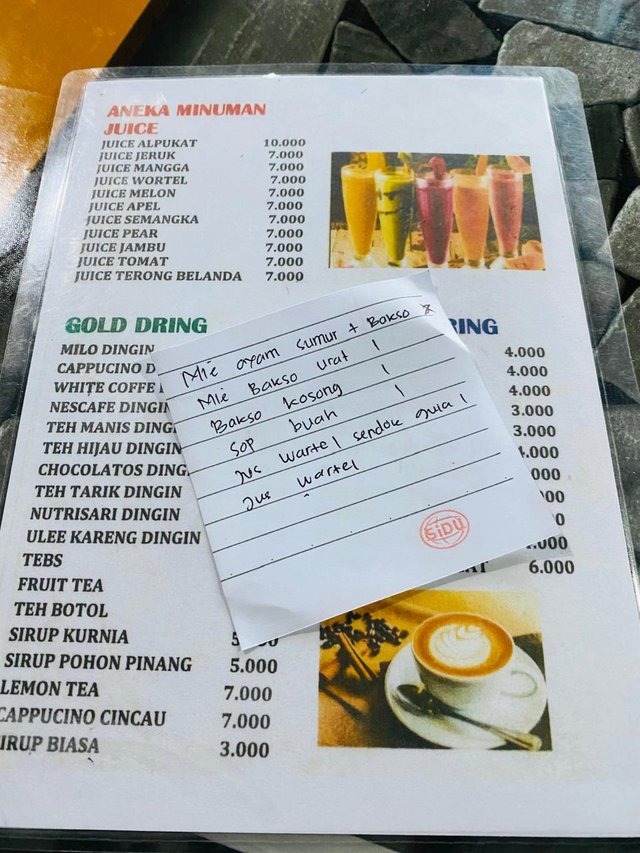 ANEKA MINUMAN
JUICE
JUICE ALPUKAT 10.000
JUICE JERUK 7.000
JUICE MANGGA 7.000
JUICE WORTEL 7.000
JUICE MELON 7.000
JUICE APEL 7.000
JUICE SEMANGKA 7.000
JUICE PEAR 7.000
JUICE JAMBU 7.000
JUICE TOMAT 7.000
JUICE TERONG BELANDA 7.000
GOLD DRING
MILO DINGIN
CAPPUCINO D
WHITE COFFE
NESCAFE DINGIN
TEH MANIS DING
TEH HIJAU DINGIN
CHOCOLATOS DING
TEH TARIK DINGIN
NUTRISARI DINGIN
ULEE KARENG DINGIN
TEBS
FRUIT TEA
TEH BOTOL
SIRUP KURNIA
SIRUP POHON PINANG 5.000
LEMON TEA 7.000
CAPPUCINO CINCAU 7.000
IRUP BIASA 3.000
Mie ayam sumur + Bakso
Mie Bakso urat 1
Bakso kosong 1
Sop buah 1
Jus Wartel sendok gula 1
Jus wartel
SiDU
RING
4.000
4.000
4.000
3.000
3.000
.000
000
00
0
.000
AT 6.000